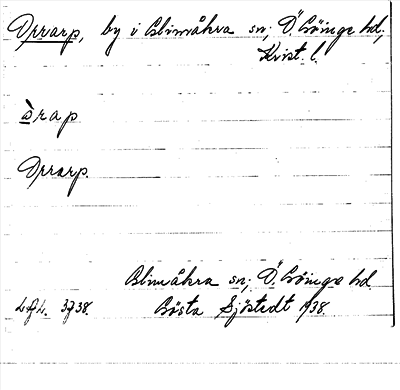 Orrarp, by i Glimåkra sn, Ö. Göinge hd,
Krist. l.
òrap
Orrarp.
Glimåkra sn, Ö. Göinge hd.
Gösta Sjöstedt 1938.